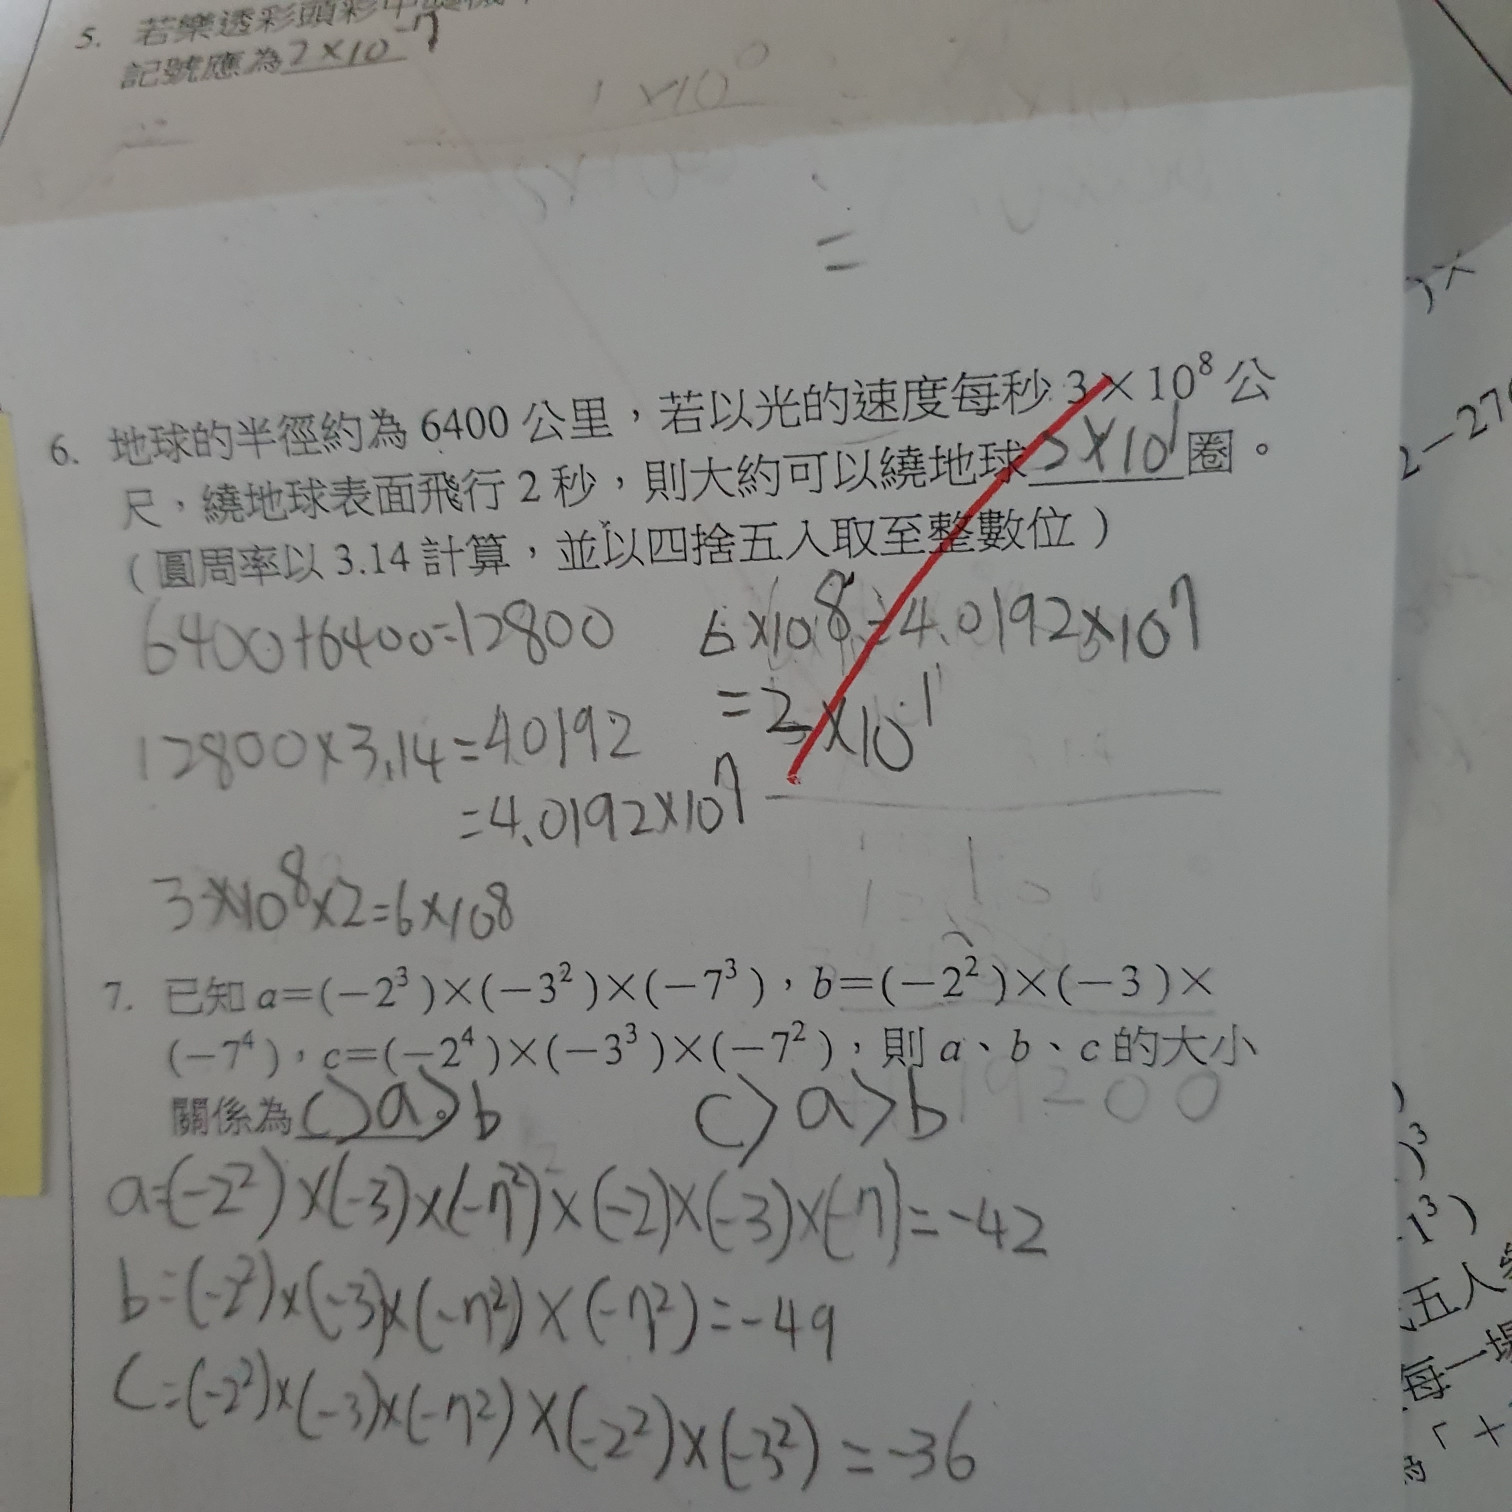 5. 若樂透彩頭彩中
記號應為2×10⁻⁷
1×10⁰
=
6. 地球的半徑約為 6400 公里,若以光的速度每秒 3×10⁸ 公
尺,繞地球表面飛行 2 秒,則大約可以繞地球 ×10¹ 圈。
(圓周率以 3.14 計算,並以四捨五入取至整數位)
6400+6400=12800
6×10⁸÷4.0192×10⁷
= ×10¹
12800×3.14=40192
=4.0192×10⁷
3×10⁸×2=6×10⁸
7. 已知 a=(-2³)×(-3²)×(-7³),b=(-2²)×(-3)×
(-7⁴),c=(-2⁴)×(-3³)×(-7²),則 a、b、c 的大小
關係為c>a>b
c>a>b
a=(-2²)×(-3)×(-7²)×(-2)×(-3)×(-7)=-42
b=(-2²)×(-3)×(-7²)×(-7²)=-49
c=(-2²)×(-3)×(-7²)×(-2²)×(-3²)=-36
)×
2-27
)³
-1³)
五人
每一場